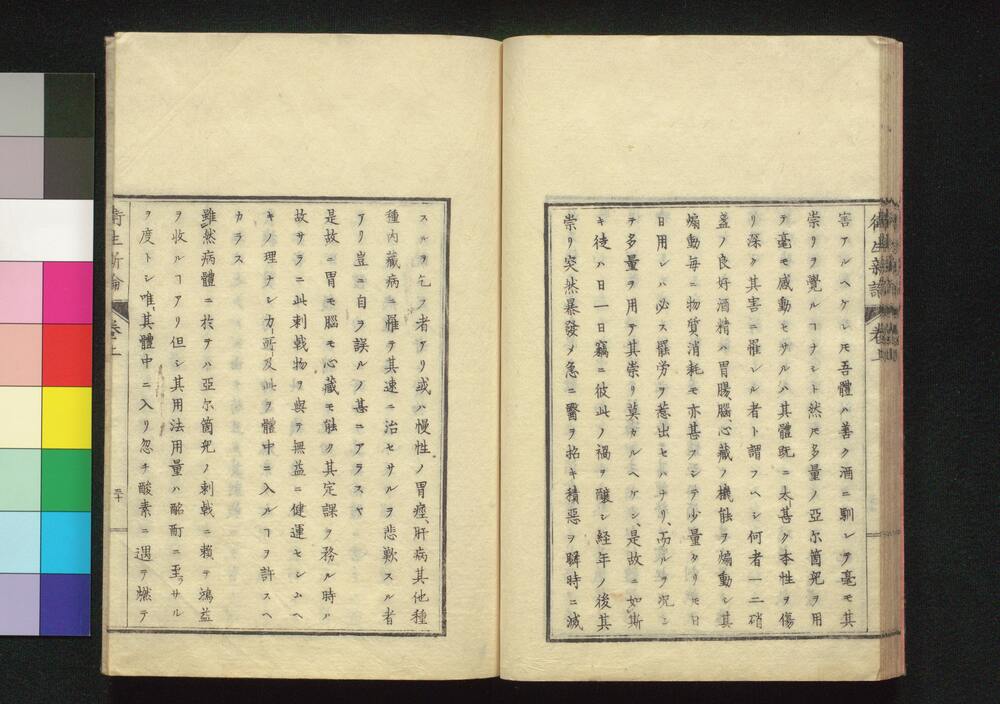 害アルヘケレ𪜈吾體ハ善ク酒ニ馴レテ毫モ其
崇リヲ覺ルヿナシト然𪜈多量ノ亞尓箇兒ヲ用
テ毫モ感動セサルハ其體既ニ太甚ク本性ヲ傷
リ深ク其害ニ罹レル者ト謂フヘシ何者一二硝
盞ノ良好酒精ハ胃腸、腦、心藏ノ機能ヲ煽動シ其
煽動每ニ物質消耗モ亦甚フシテ少量タリ𪜈日
日用レハ必ス罹勞ヲ惹出セハナリ、而ルヲ况ン
ヲ多量ヲ用テ其崇リ莫カルヘケン、是故ニ如斯
キ徒ハ日一日竊ニ彼此ノ禍ヲ釀シ経年ノ後其
崇リ突然暴發メ急ニ醫ヲ招キ積惡ヲ瞬時ニ滅
スルヲ乞フ者アリ或ハ慢性ノ胃痙、肝病其他種
種内藏病ニ罹テ其速ニ治セサルヲ悲歎スル者
アリ豈ニ自ヲ誤ルノ甚ニアラスヤ
是故ニ胃モ腦モ心藏モ能ク其定課ヲ務ル時ハ
故サラニ此刺戟物ヲ與テ無益ニ健運セシムヘ
キノ理ナシ力所及此ヲ體中ニ入ルヿヲ許スヘ
カラス
雖然病體ニ於テハ亞尔箇兒ノ刺戟ニ賴テ鴻益
ヲ收ルヿアリ但シ其用法用量ハ酩酊ニ至ラサル
ヲ度トシ唯其體中ニ入リ忽チ酸素ニ遇テ燃テ
衛生新論
卷之上
五十